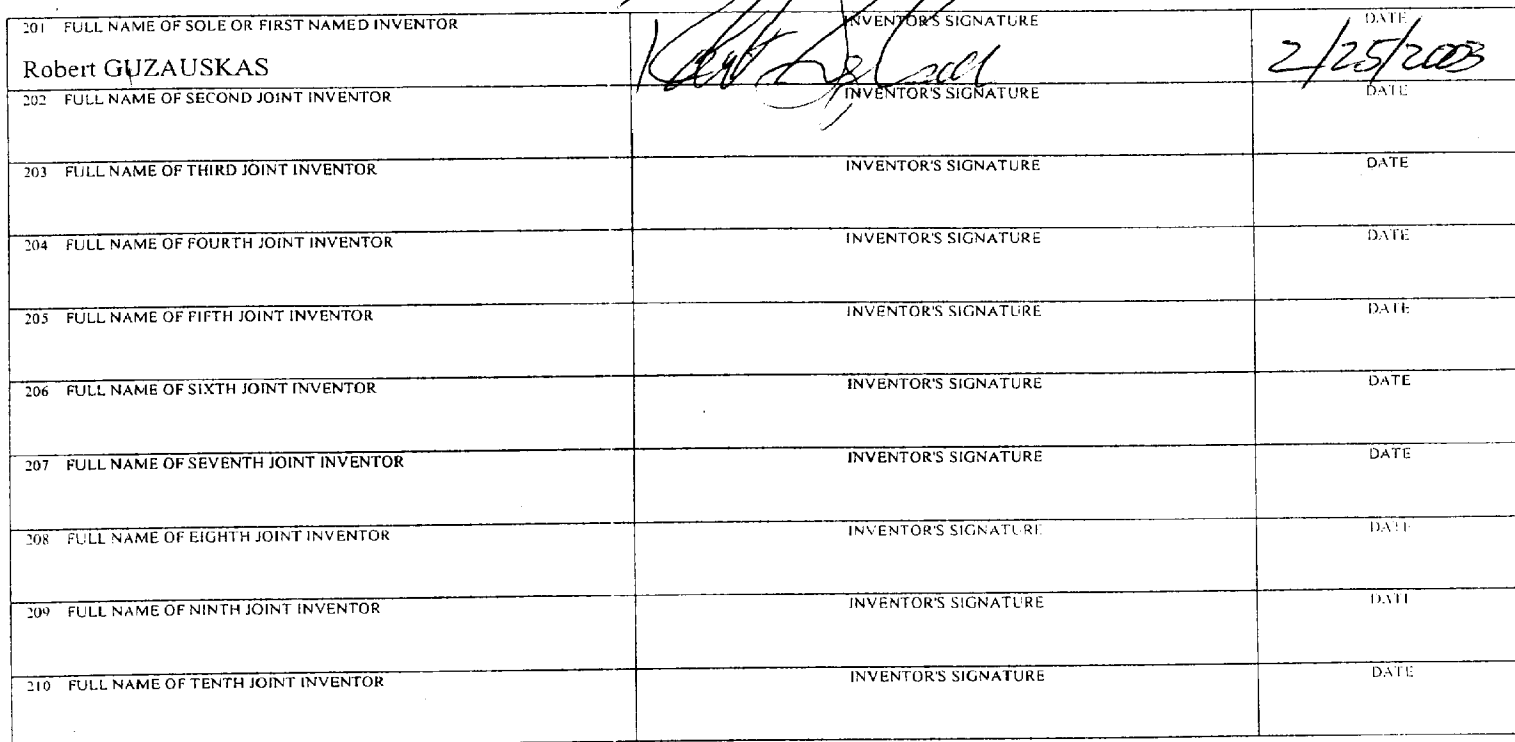 201 FULL NAME OF SOLE OR FIRST NAMED INVENTOR INVENTOR'S SIGNATURE DATE
Robert GUZAUSKAS 2/25/2003
202 FULL NAME OF SECOND JOINT INVENTOR INVENTOR'S SIGNATURE DATE
203 FULL NAME OF THIRD JOINT INVENTOR INVENTOR'S SIGNATURE DATE
204 FULL NAME OF FOURTH JOINT INVENTOR INVENTOR'S SIGNATURE DATE
205 FULL NAME OF FIFTH JOINT INVENTOR INVENTOR'S SIGNATURE DATE
206 FULL NAME OF SIXTH JOINT INVENTOR INVENTOR'S SIGNATURE DATE
207 FULL NAME OF SEVENTH JOINT INVENTOR INVENTOR'S SIGNATURE DATE
208 FULL NAME OF EIGHTH JOINT INVENTOR INVENTOR'S SIGNATURE DATE
209 FULL NAME OF NINTH JOINT INVENTOR INVENTOR'S SIGNATURE DATE
210 FULL NAME OF TENTH JOINT INVENTOR INVENTOR'S SIGNATURE DATE